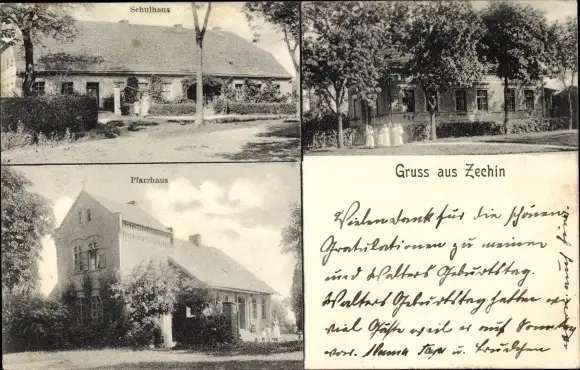 Schulhaus
Pfarrhaus
Gruss aus Zechin
Vielen Dank für die schönen
Gratulationen zu meinen
und Walters Geburtstag.
Walters Geburtstag hatten wir
viel Gäste weil er auf Sonntag
war. Mama Papa u. Trudchen
waren auch hier.